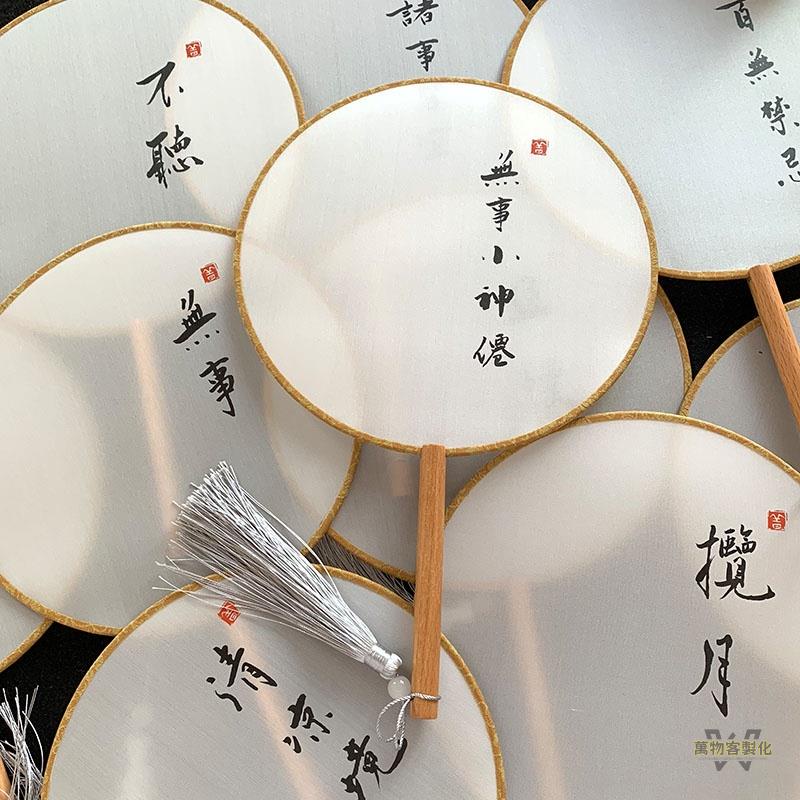 不聽
諸事
百無禁忌
無事小神僊
無事
攬月
清涼
萬物客製化